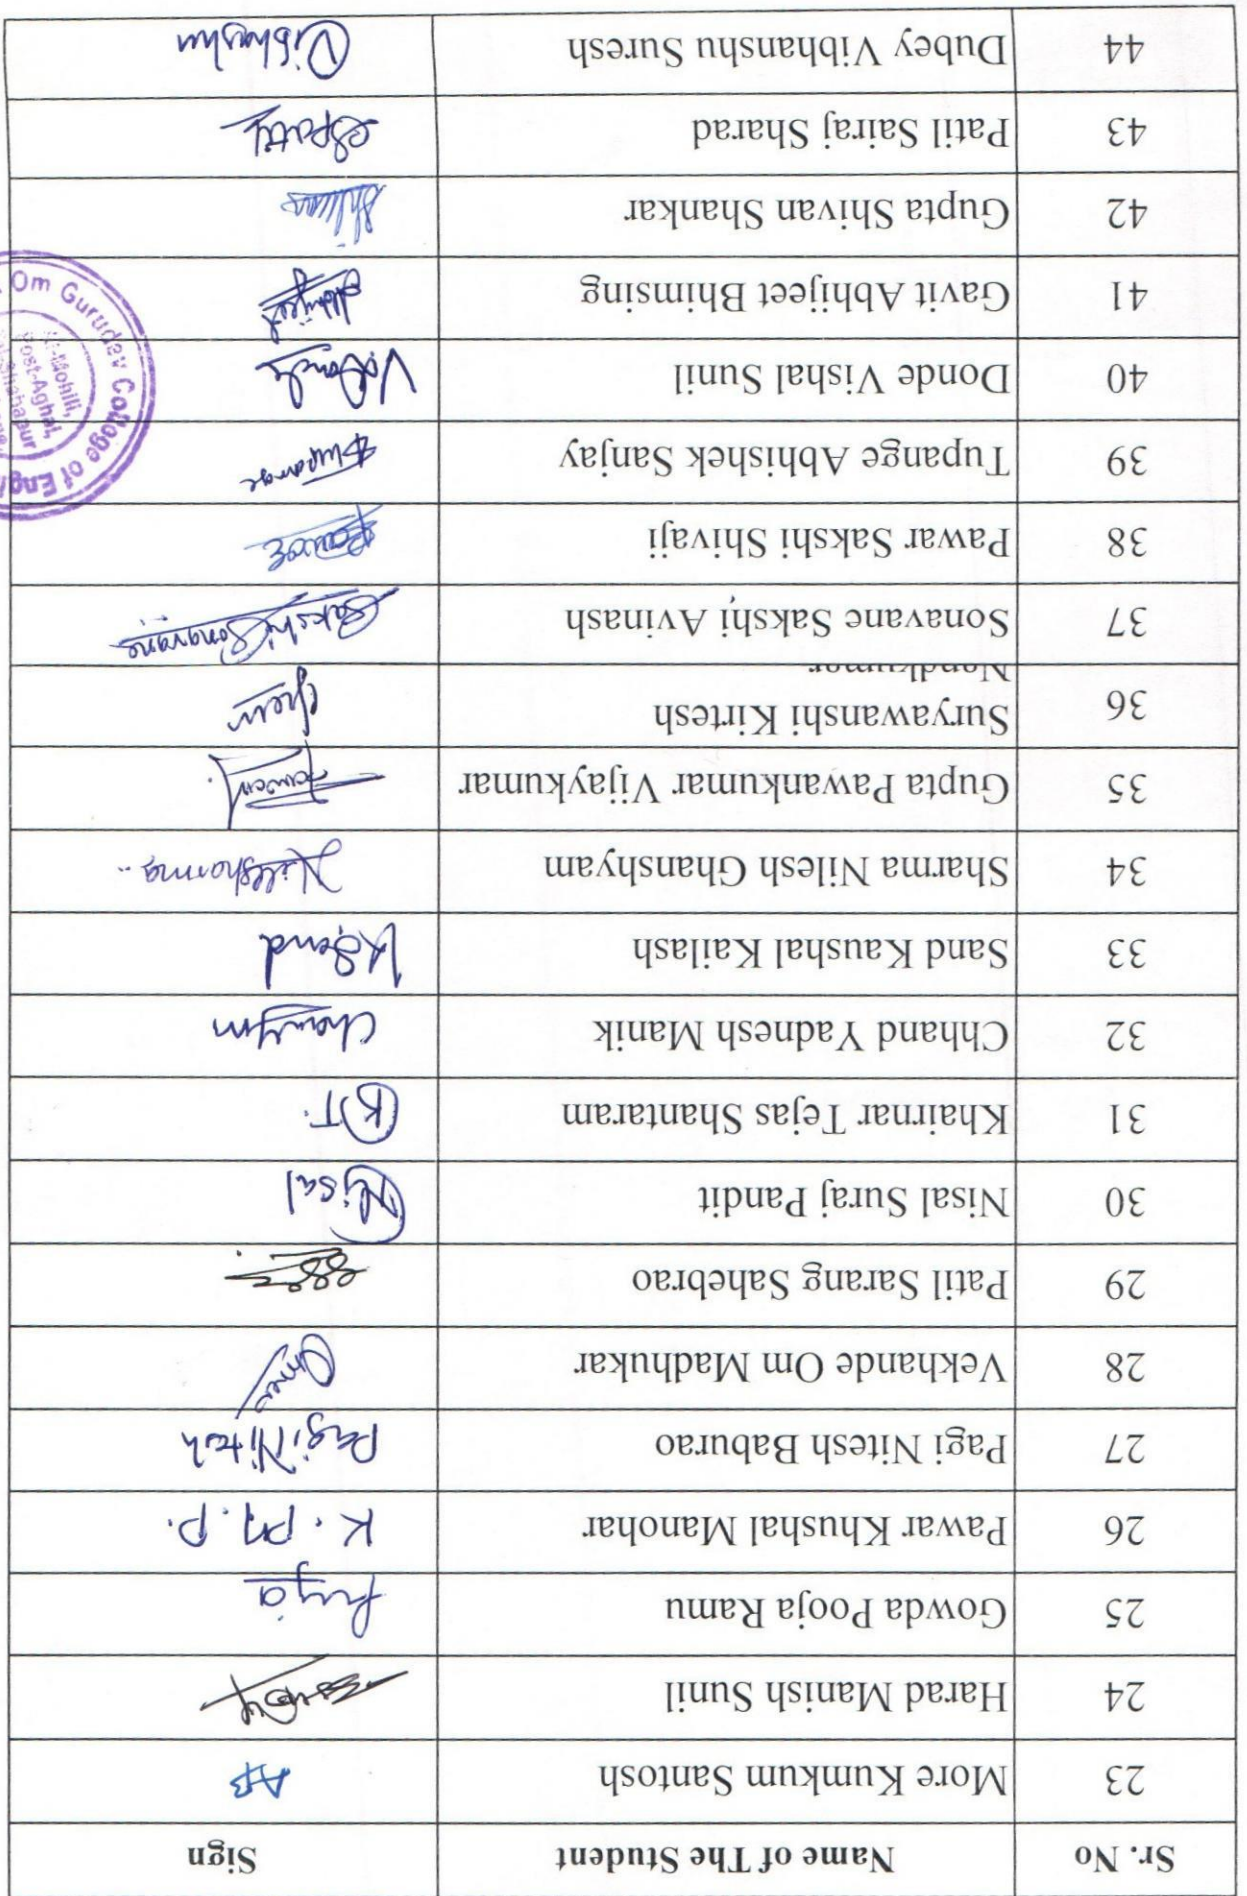 Sr. No Name of The Student Sign
23 More Kumkum Santosh AB
24 Harad Manish Sunil
25 Gowda Pooja Ramu Puja
26 Pawar Khushal Manohar K. M. P.
27 Pagi Nitesh Baburao Pagi Nitesh
28 Vekhande Om Madhukar
29 Patil Sarang Sahebrao
30 Nisal Suraj Pandit Nisal
31 Khairnar Tejas Shantaram KT.
32 Chhand Yadnesh Manik
33 Sand Kaushal Kailash KSand
34 Sharma Nilesh Ghanshyam
35 Gupta Pawankumar Vijaykumar
36 Suryawanshi Kirtesh
Nandkumar
37 Sonavane Sakshi Avinash Sakshi Sonavane
38 Pawar Sakshi Shivaji
39 Tupange Abhishek Sanjay
40 Donde Vishal Sunil
41 Gavit Abhijeet Bhimsing
42 Gupta Shivan Shankar
43 Patil Sairaj Sharad
44 Dubey Vibhanshu Suresh Vibhanshu
Om Gurudev College of Eng
At-Mohili,
Post-Aghai,
Shahapur